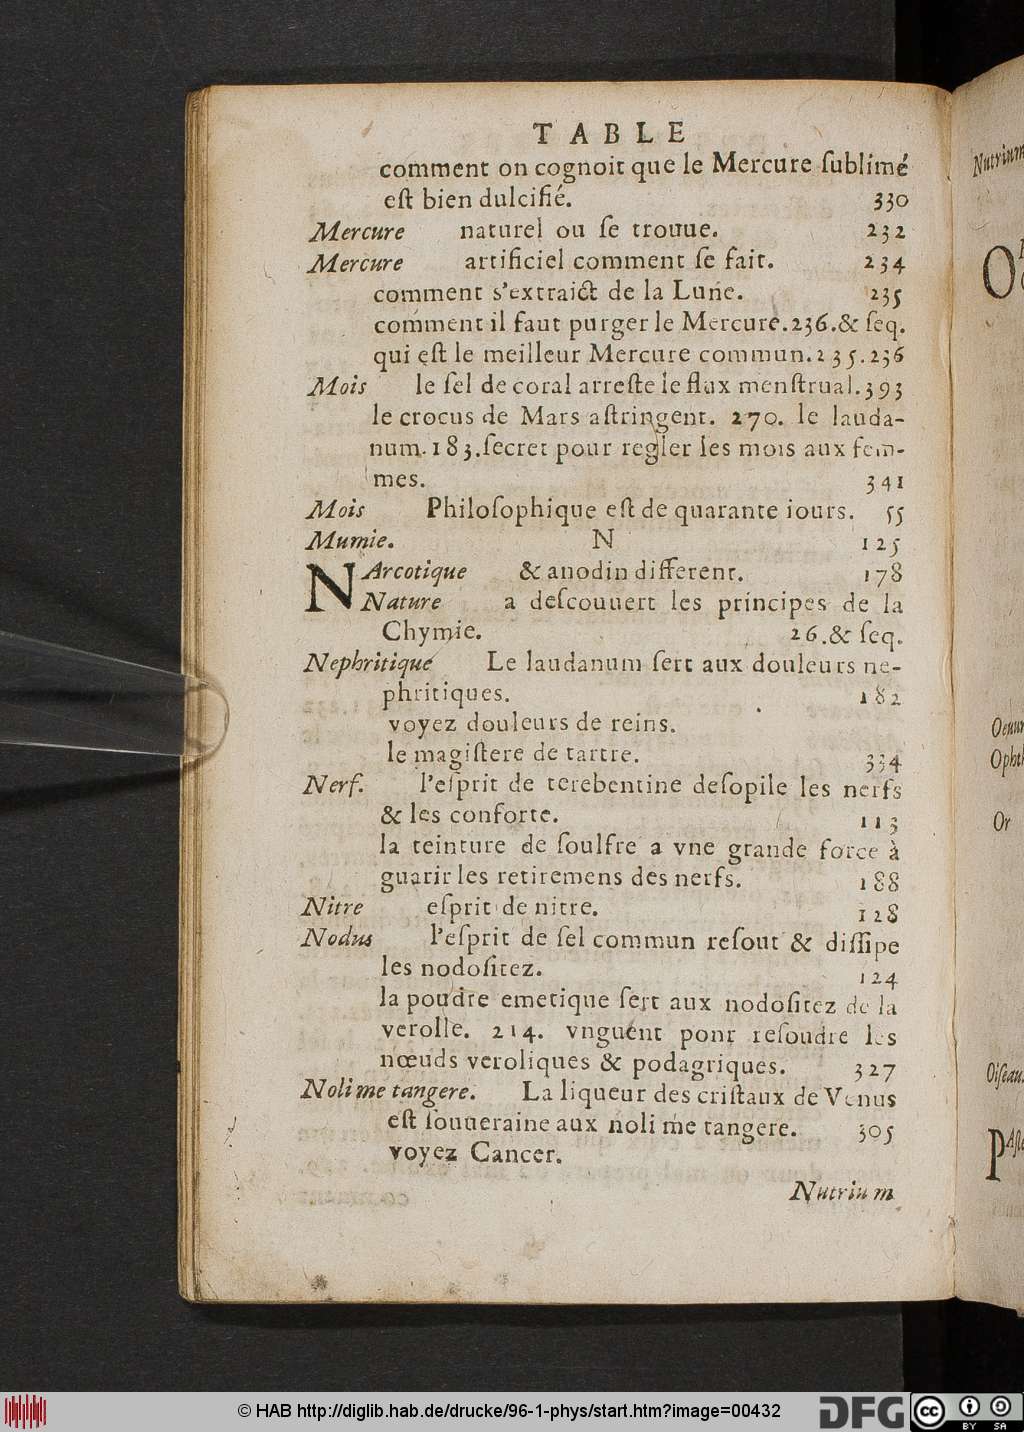 TABLE
comment on cognoit que le Mercure ſublimé
eſt bien dulcifié. 330
Mercure naturel ou ſe trouue. 232
Mercure artificiel comment ſe fait. 234
comment s'extraict de la Lune. 235
comment il faut purger le Mercure. 236. & ſeq.
qui eſt le meilleur Mercure commun. 235. 236
Mois le ſel de coral arreſte le flux menſtrual. 393
le crocus de Mars aſtringent. 270. le lauda-
num. 183. ſecret pour regler les mois aux fem-
mes. 341
Mois Philoſophique eſt de quarante iours. 55
Mumie. 125
N
NArcotique & anodin different. 178
Nature a deſcouuert les principes de la
Chymie. 26. & ſeq.
Nephritique Le laudanum ſert aux douleurs ne-
phritiques. 182
voyez douleurs de reins.
le magiſtere de tartre. 334
Nerf. l'eſprit de terebentine deſopile les nerfs
& les conforte. 113
la teinture de ſoulfre a vne grande force à
guarir les retiremens des nerfs. 188
Nitre eſprit de nitre. 128
Nodus l'eſprit de ſel commun reſout & diſſipe
les nodoſitez. 124
la poudre emetique ſert aux nodoſitez de la
verolle. 214. vnguent ponr reſoudre les
nœuds veroliques & podagriques. 327
Noli me tangere. La liqueur des criſtaux de Venus
eſt ſouueraine aux noli me tangere. 305
voyez Cancer.
Nutrium
Nutrium
Oenum
Or
Oiſeau.
PAſte
© HAB http://diglib.hab.de/drucke/96-1-phys/start.htm?image=00432
DFG
cc
BY SA